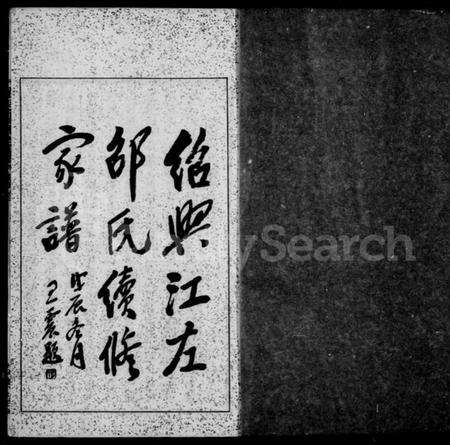 紹興江左
邵氏續修
家譜
戊辰冬月
王震題
FamilySearch